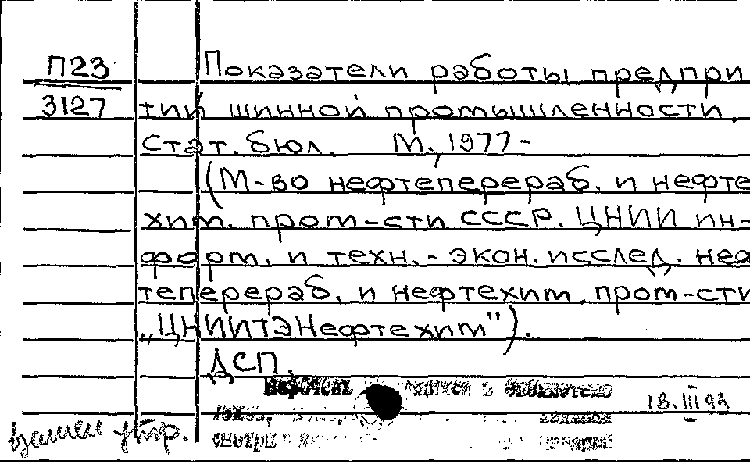 П23 Показатели работы предпри
3127 тий шинной промышленности.
Стат. бюл. М., 1977-
(М-во нефтеперераб. и нефте
хим. пром-сти СССР. ЦНИИ ин-
форм. и техн.-экон. исслед. неф
теперераб. и нефтехим. пром-сти
„ЦНИИТЭНефтехим").
ДСП.
в библиотеке
18.III 93